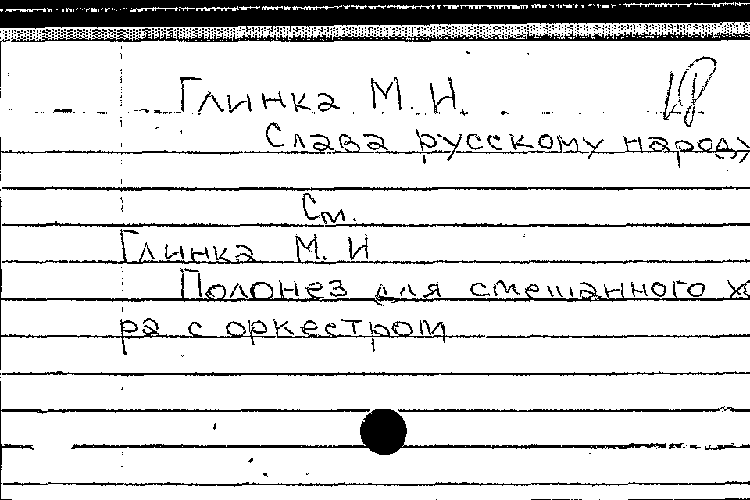 Глинка М. И.
Слава русскому народу
См.
Глинка М. И
Полонез для смешанного хо
ра с оркестром